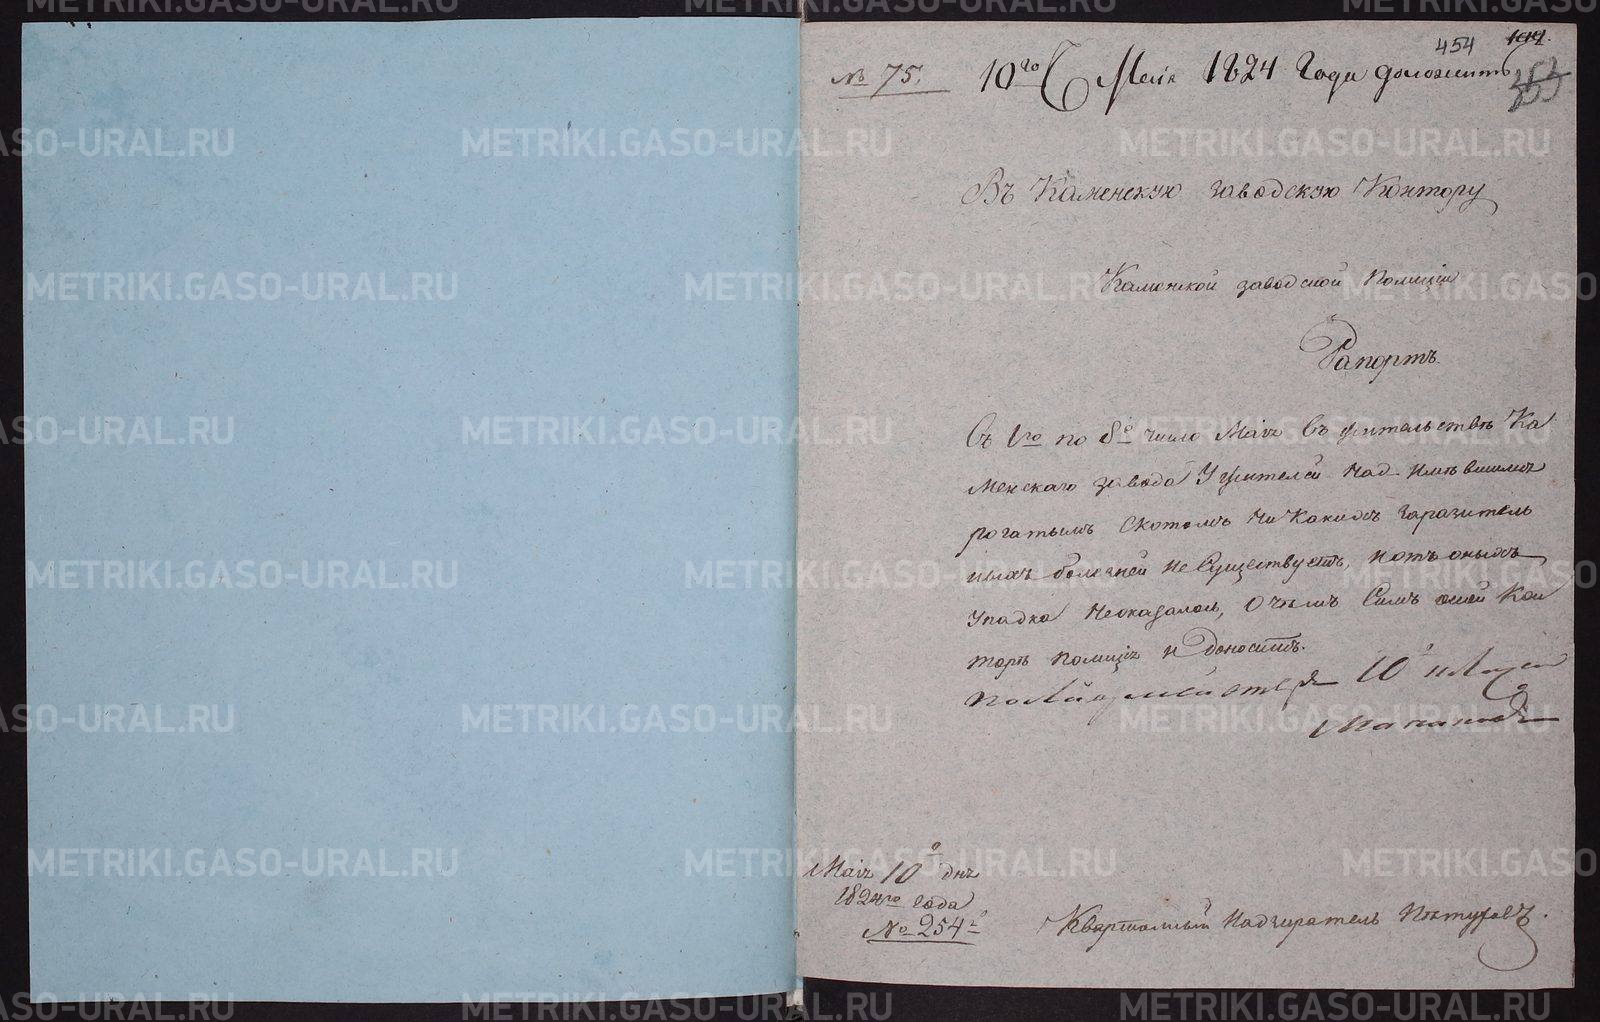 454
№ 75. 10го Маія 1824 Года доложить
Въ Каменскую заводскую Кантору
Каменской заводской Полиціи
Рапортъ.
Съ 1го по 8е число Маія въ жительствѣ Ка
менскаго завода У жителей Над имѣвшимъ
рогатымъ Скотомъ Ни какихъ заразитель
ныхъ болезней не Существуетъ, и отъ оныхъ
Упадка Неоказалось, О чемъ Симъ оной Кон
торѣ полиція и доноситъ.
Полицмейстеръ
10 Маія
Маія 10 дня
1824го года
№ 254й
Квартальный Надзиратель Пѣтуховъ.